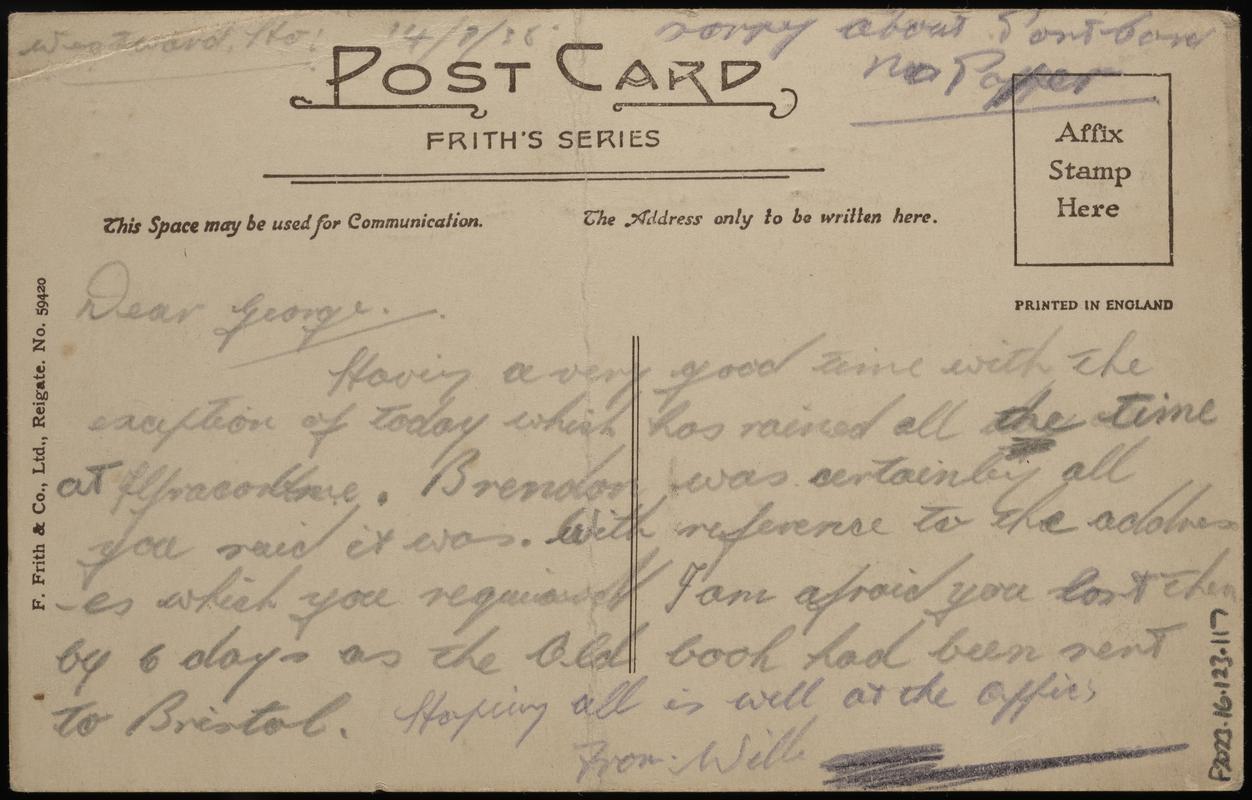 Westward. Ho! 14/9/28
sorry about Postcard
No Paper
POST CARD
FRITH'S SERIES
This Space may be used for Communication.
The Address only to be written here.
Affix
Stamp
Here
PRINTED IN ENGLAND
F. Frith & Co., Ltd., Reigate. No. 59420
Dear George.
Having a very good time with the
exception of today which has rained all the time
at Ilfracombe. Brendon was certainly all
you said it was. With reference to the address
-es which you required I am afraid you lost them
by 6 days as the Old book had been sent
to Bristol. Hoping all is well at the office
From: Will
F2023.16.123.117